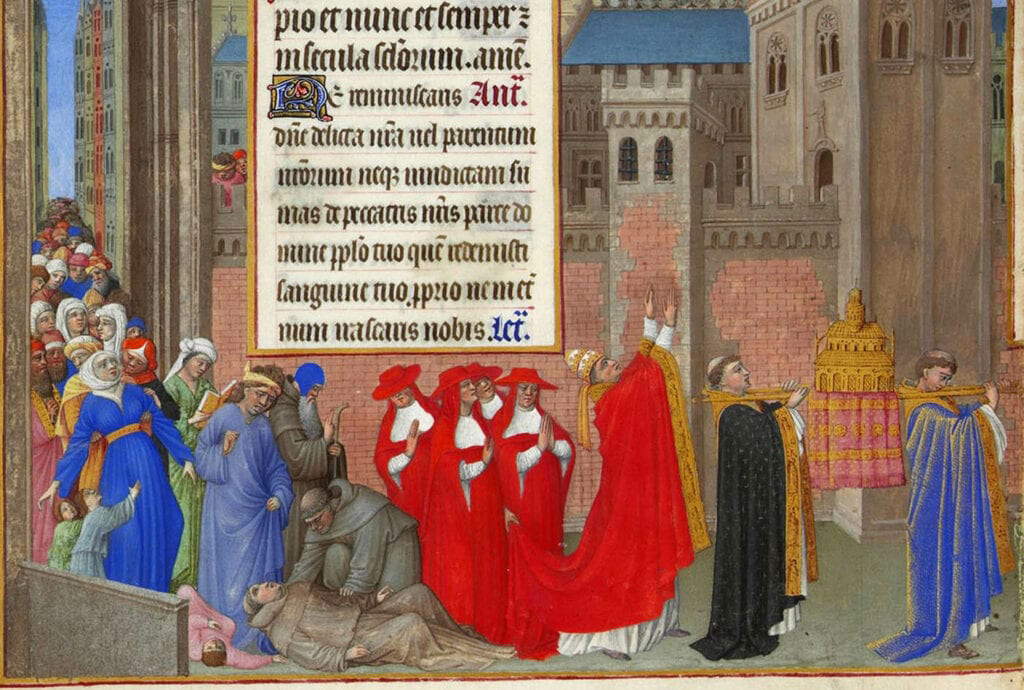 pio et nunc et semper ⁊
in secula sc̄lorum. amē.
Ne reminiscaris Ant̄.
dn̄e delicta nr̄a uel parentum
nr̄orum neqꝫ uindictam su
mas de peccatis nr̄is parce do
mine pplo tuo quē redemisti
sanguine tuo p̱prio ne in et
num irascaris nobis. Let̄.